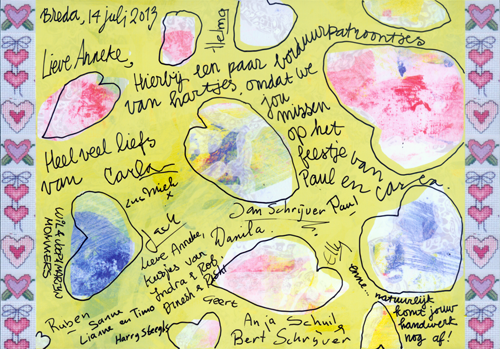 Breda, 14 juli 2013
Lieve Anneke,
Hierbij een paar borduurpatroontjes
van hartjes, omdat we
jou
missen
op het
feestje van
Paul en Carla.
Heel veel liefs
van Carla
x
Jan Schrijver
Paul
Danila.
Elly
Lieve Anneke,
kusjes van
Indra & Rob,
Geert
Ruben
Sanne
Lianne en Timo
Harry
Anja Schuil
Bert Schrijver
enne... natuurlijk
komt jouw
handwerk
nog af!